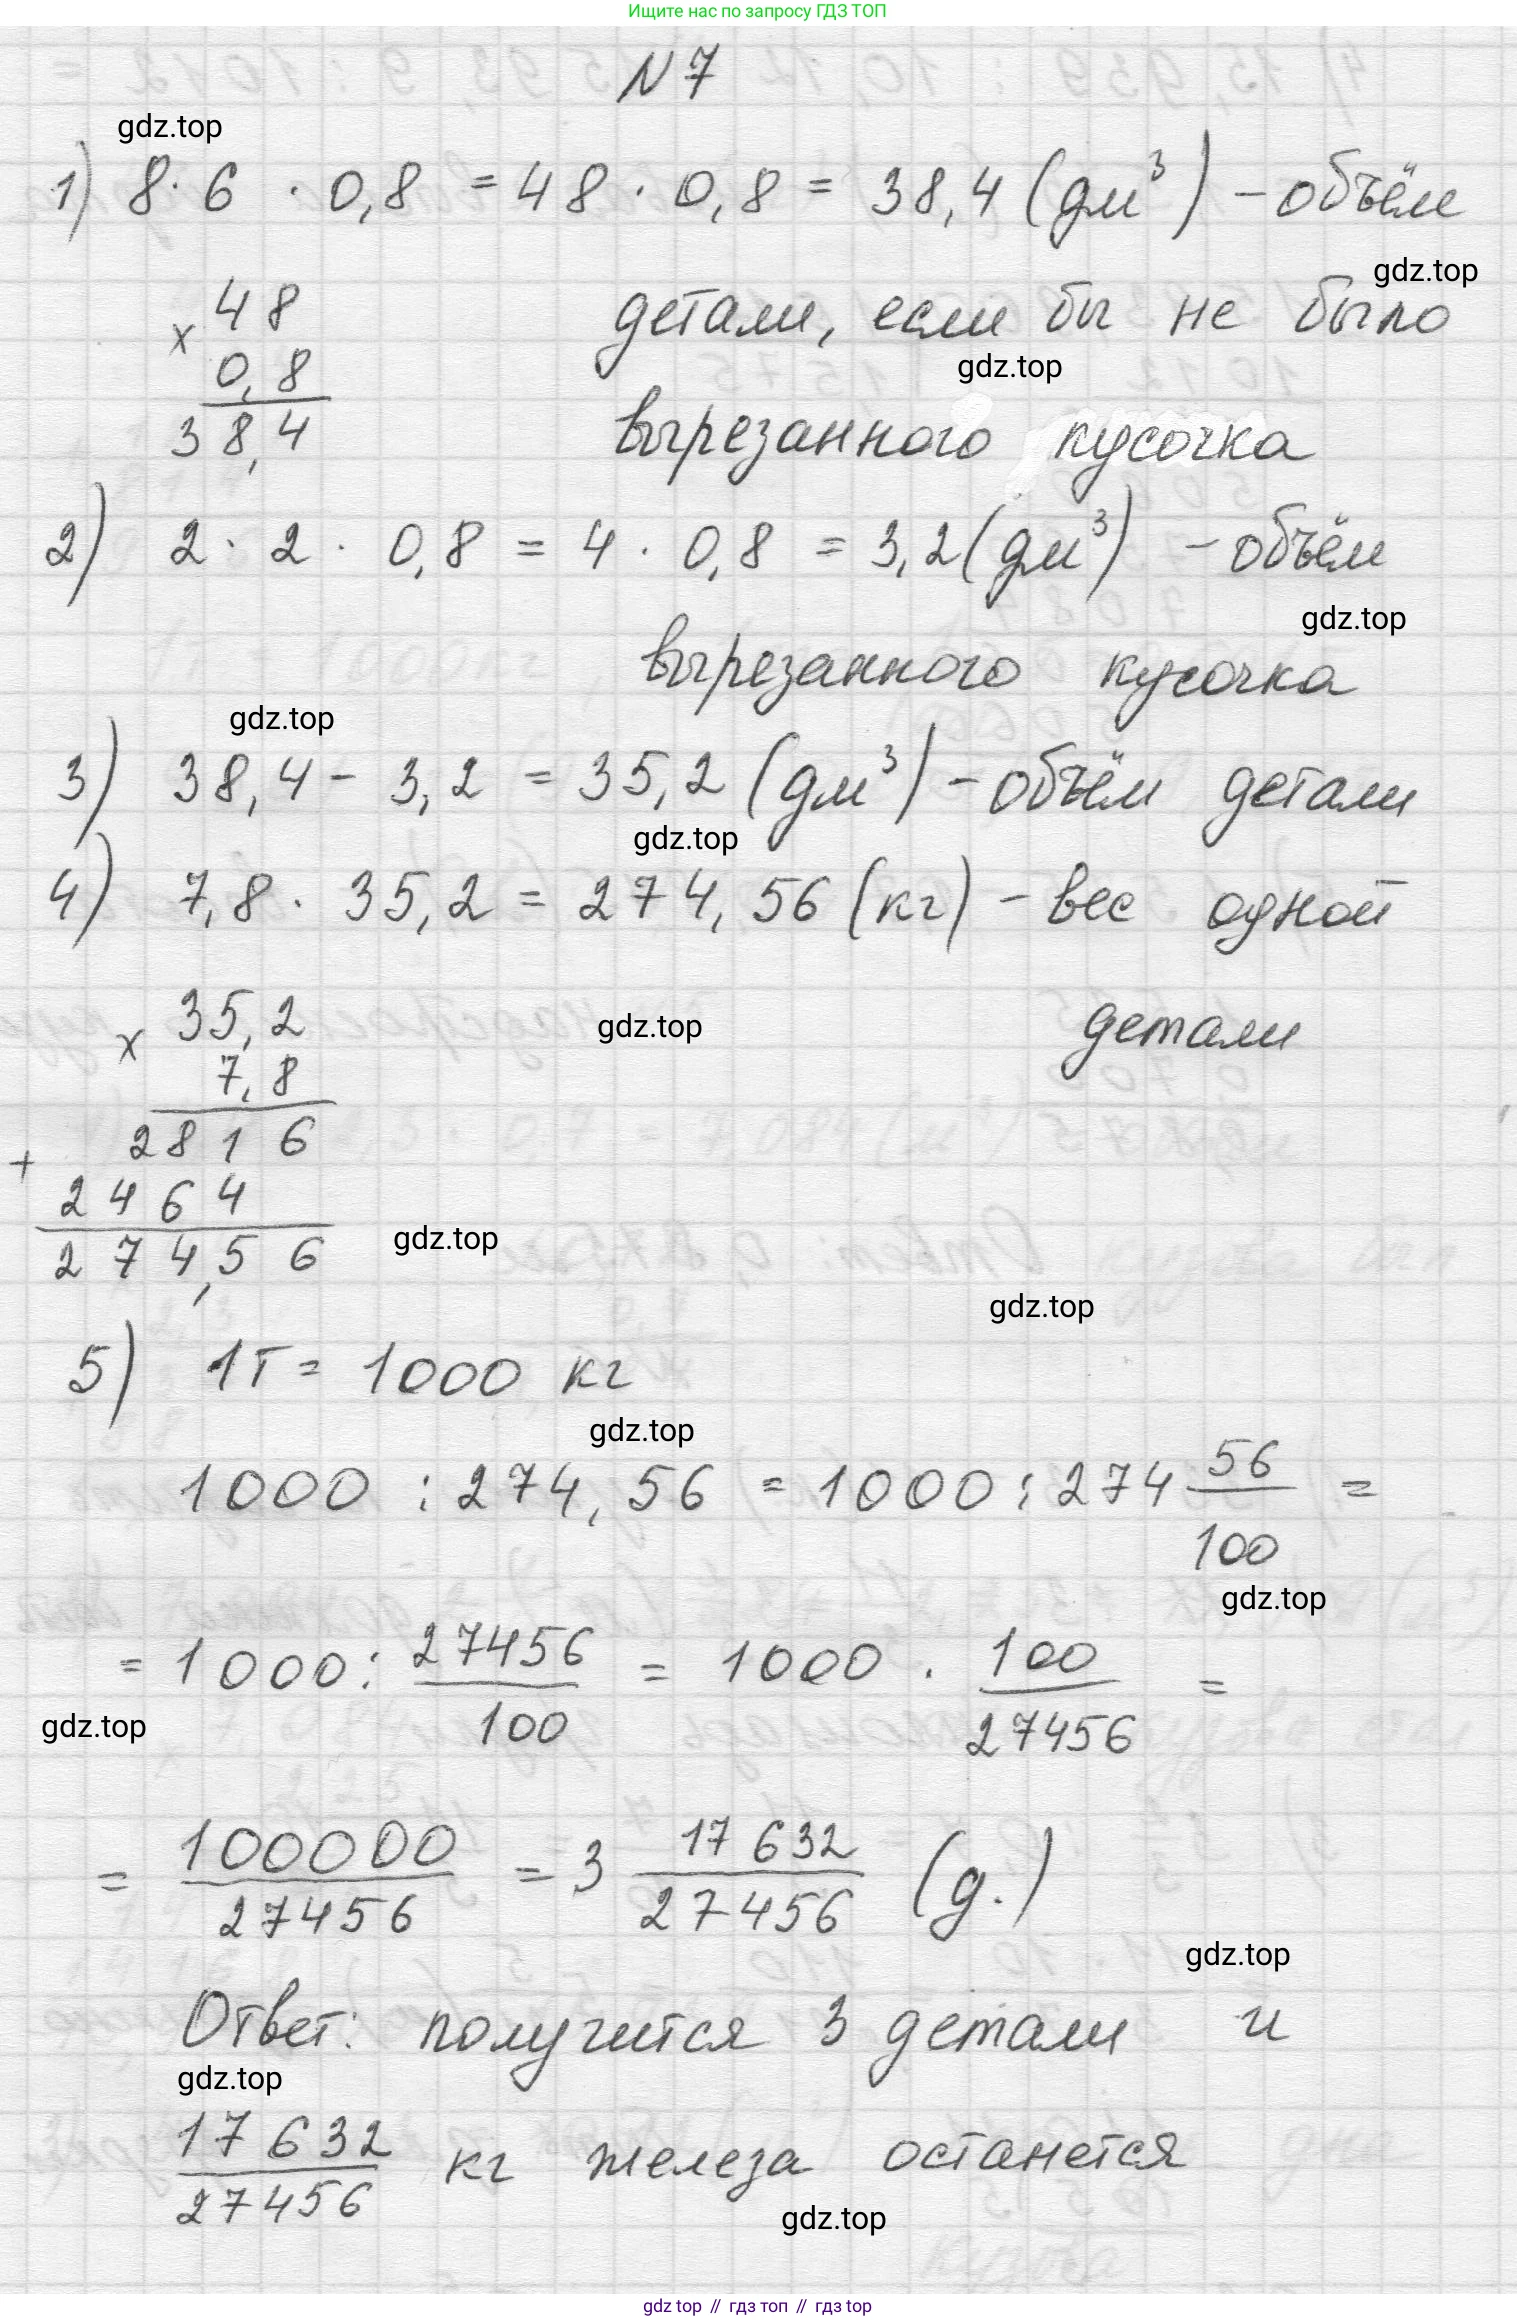 Ищите нас по запросу ГДЗ ТОП
N 7
gdz.top
1) 8 · 6 · 0,8 = 48 · 0,8 = 38,4 (дм³) – объём
gdz.top
48
детали, если бы не было
x
0,8
gdz.top
38,4
вырезанного кусочка
2) 2 · 2 · 0,8 = 4 · 0,8 = 3,2 (дм³) – объём
gdz.top
вырезанного кусочка
gdz.top
3) 38,4 – 3,2 = 35,2 (дм³) – объём детали
gdz.top
4) 7,8 · 35,2 = 274,56 (кг) – вес одной
детали
gdz.top
x 35,2
7,8
2816
+
2464
274,56
gdz.top
gdz.top
5) 1т = 1000 кг
gdz.top
1000 : 274,56 = 1000 : 274 56/100 =
gdz.top
= 1000 : 27456/100 = 1000 · 100/27456 =
gdz.top
= 100000/27456 = 3 17632/27456 (д.)
gdz.top
Ответ: получится 3 детали и
gdz.top
17632/27456 кг железа останется
gdz.top
gdz top // гдз топ // гдз top